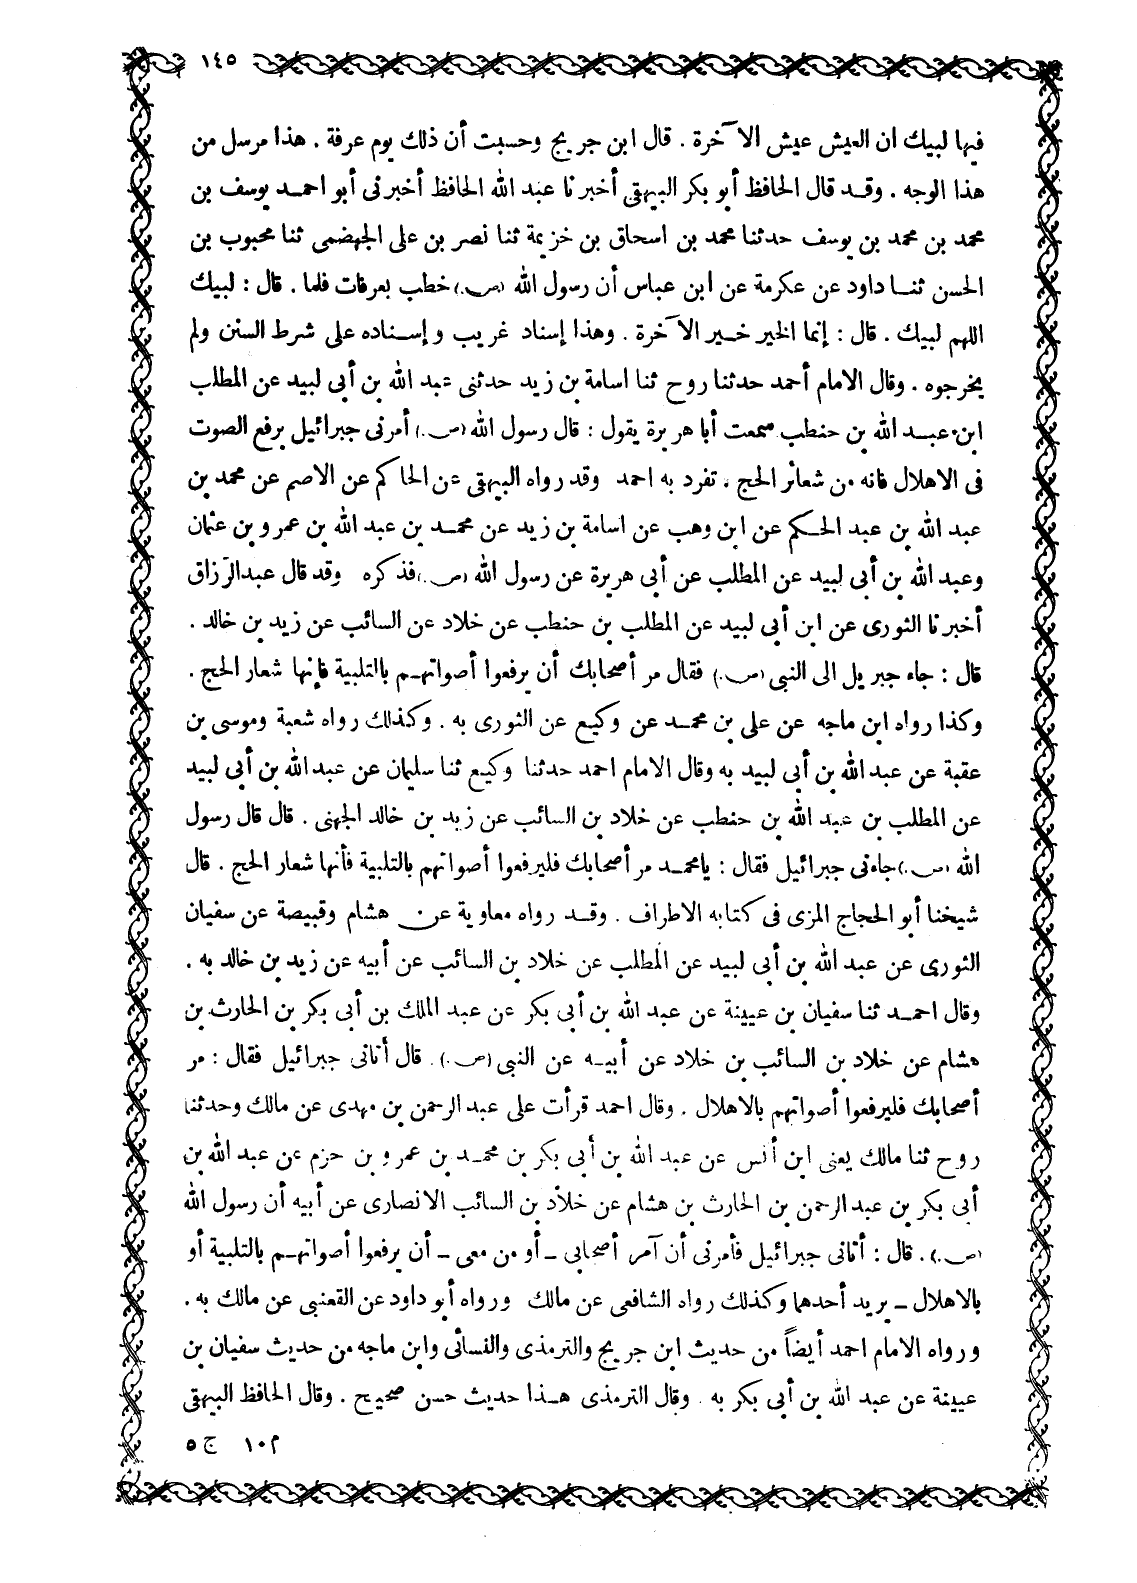 ١٤٥
فيها لبيك ان العيش عيش الآخرة . قال ابن جريج وحسبت أن ذلك يوم عرفة . هذا مرسل من
هذا الوجه . وقد قال الحافظ أبو بكر البيهقى أخبرنا عبد الله الحافظ أخبرنى أبو احمد يوسف بن
محمد بن محمد بن يوسف حدثنا محمد بن اسحاق بن خزيمة ثنا نصر بن على الجهضمى ثنا محبوب بن
الحسن ثنا داود عن عكرمة عن ابن عباس أن رسول الله (ص.) خطب بعرفات فلما . قال : لبيك
اللهم لبيك . قال : إنما الخير خير الآخرة . وهذا إسناد غريب وإسناده على شرط السنن ولم
يخرجوه . وقال الامام أحمد حدثنا روح ثنا اسامة بن زيد حدثنى عبد الله بن أبى لبيد عن المطلب
ابن عبد الله بن حنطب سمعت أبا هريرة يقول : قال رسول الله (ص.) أمرنى جبرائيل برفع الصوت
فى الاهلال فانه من شعائر الحج ، تفرد به احمد وقد رواه البيهقى عن الحاكم عن الاصم عن محمد بن
عبد الله بن عبد الحكم عن ابن وهب عن اسامة بن زيد عن محمد بن عبد الله بن عمرو بن عثمان
وعبد الله بن أبى لبيد عن المطلب عن أبى هريرة عن رسول الله (ص.) فذكره وقد قال عبد الرزاق
أخبرنا الثورى عن ابن أبى لبيد عن المطلب بن حنطب عن خلاد عن السائب عن زيد بن خالد .
قال : جاء جبريل الى النبى (ص.) فقال مر أصحابك أن يرفعوا أصواتهم بالتلبية فإنها شعار الحج .
وكذا رواه ابن ماجه عن على بن محمد عن وكيع عن الثورى به . وكذلك رواه شعبة وموسى بن
عقبة عن عبد الله بن أبى لبيد به وقال الامام احمد حدثنا وكيع ثنا سليمان عن عبد الله بن أبى لبيد
عن المطلب بن عبد الله بن حنطب عن خلاد بن السائب عن زيد بن خالد الجهنى . قال قال رسول
الله (ص.) جاءنى جبرائيل فقال : يا محمد مر أصحابك فليرفعوا أصواتهم بالتلبية فأنها شعار الحج . قال
شيخنا أبو الحجاج المزى فى كتابه الاطراف . وقد رواه معاوية عن هشام وقبيصة عن سفيان
الثورى عن عبد الله بن أبى لبيد عن المطلب عن خلاد بن السائب عن أبيه عن زيد بن خالد به .
وقال احمد ثنا سفيان بن عيينة عن عبد الله بن أبى بكر عن عبد الملك بن أبى بكر بن الحارث بن
هشام عن خلاد بن السائب بن خلاد عن أبيه عن النبى (ص.) . قال أتانى جبرائيل فقال : مر
أصحابك فليرفعوا أصواتهم بالاهلال . وقال احمد قرأت على عبد الرحمن بن مهدى عن مالك وحدثنا
روح ثنا مالك يعنى ابن أنس عن عبد الله بن أبى بكر بن محمد بن عمرو بن حزم عن عبد الله بن
أبى بكر بن عبد الرحمن بن الحارث بن هشام عن خلاد بن السائب الانصارى عن أبيه أن رسول الله
(ص.) . قال : أتانى جبرائيل فأمرنى أن آمر أصحابى - أو من معى - أن يرفعوا أصواتهم بالتلبية أو
بالاهلال - يريد أحدهما وكذلك رواه الشافعى عن مالك ورواه أبو داود عن القعنبى عن مالك به .
ورواه الامام احمد أيضاً من حديث ابن جريج والترمذى والنسائى وابن ماجه من حديث سفيان بن
عيينة عن عبد الله بن أبى بكر به . وقال الترمذى هذا حديث حسن صحيح . وقال الحافظ البيهقى
م ١٠ ج ٥